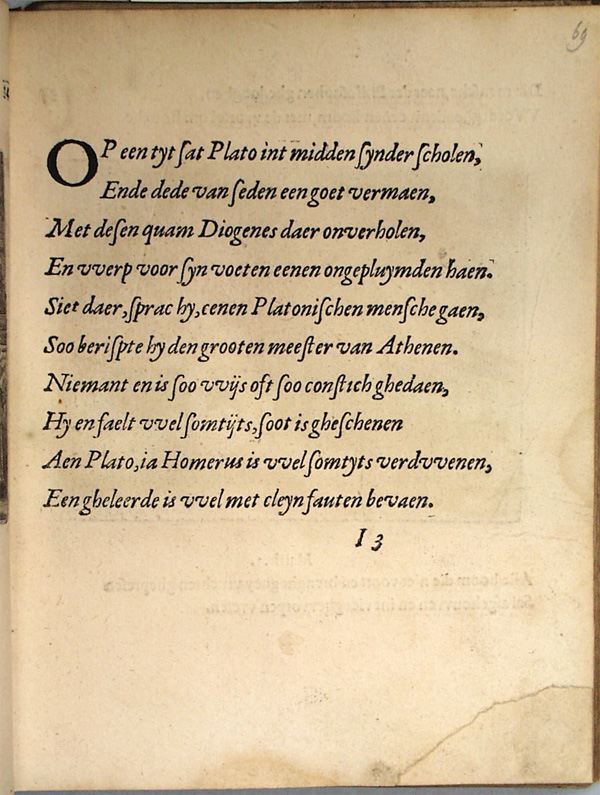 69
OP een tyt sat Plato int midden synder scholen,
Ende dede van seden een goet vermaen,
Met desen quam Diogenes daer onverholen,
En vverp voor syn voeten eenen ongepluymden haen.
Siet daer, sprac hy, eenen Platonischen mensche gaen,
Soo berispte hy den grooten meester van Athenen.
Niemant en is soo vvijs oft soo constich ghedaen,
Hy en faelt vvel somtijts, soot is gheschenen
Aen Plato, ia Homerus is vvel somtyts verdvvenen,
Een gheleerde is vvel met cleyn fauten bevaen.
I 3